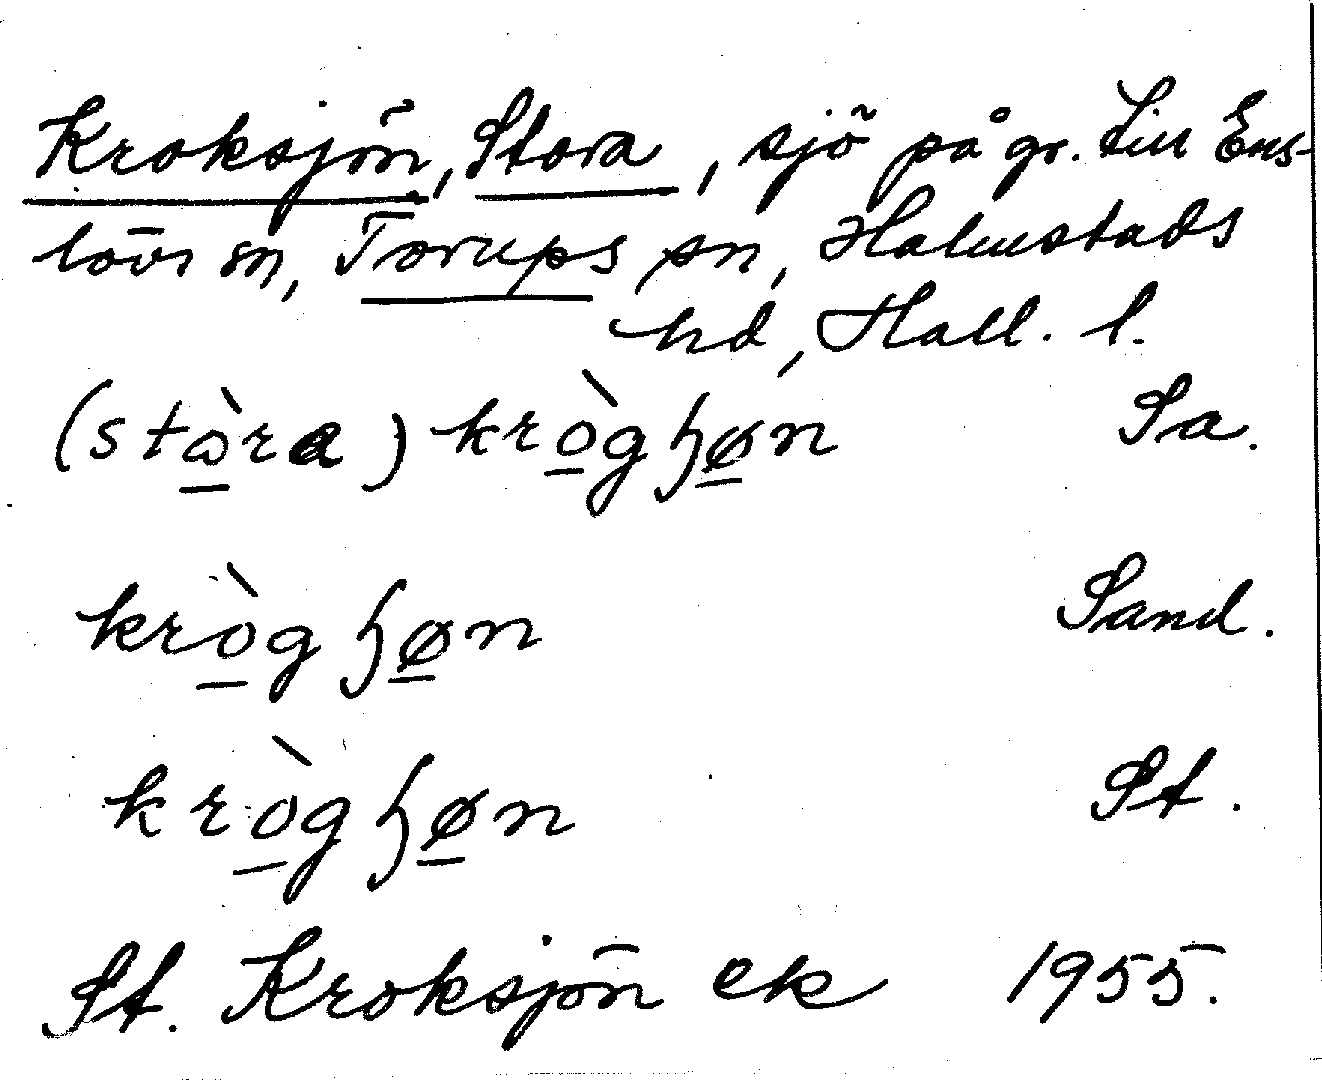 Kroksjön, Stora, sjö på gr. till Ens-
lövs sn, Torups sn, Halmstads
hd, Hall. l.
(stɷ̀ra) krògɧøn Sa.
krògɧøn Sand.
krògɧøn St.
St. Kroksjön ek 1955.